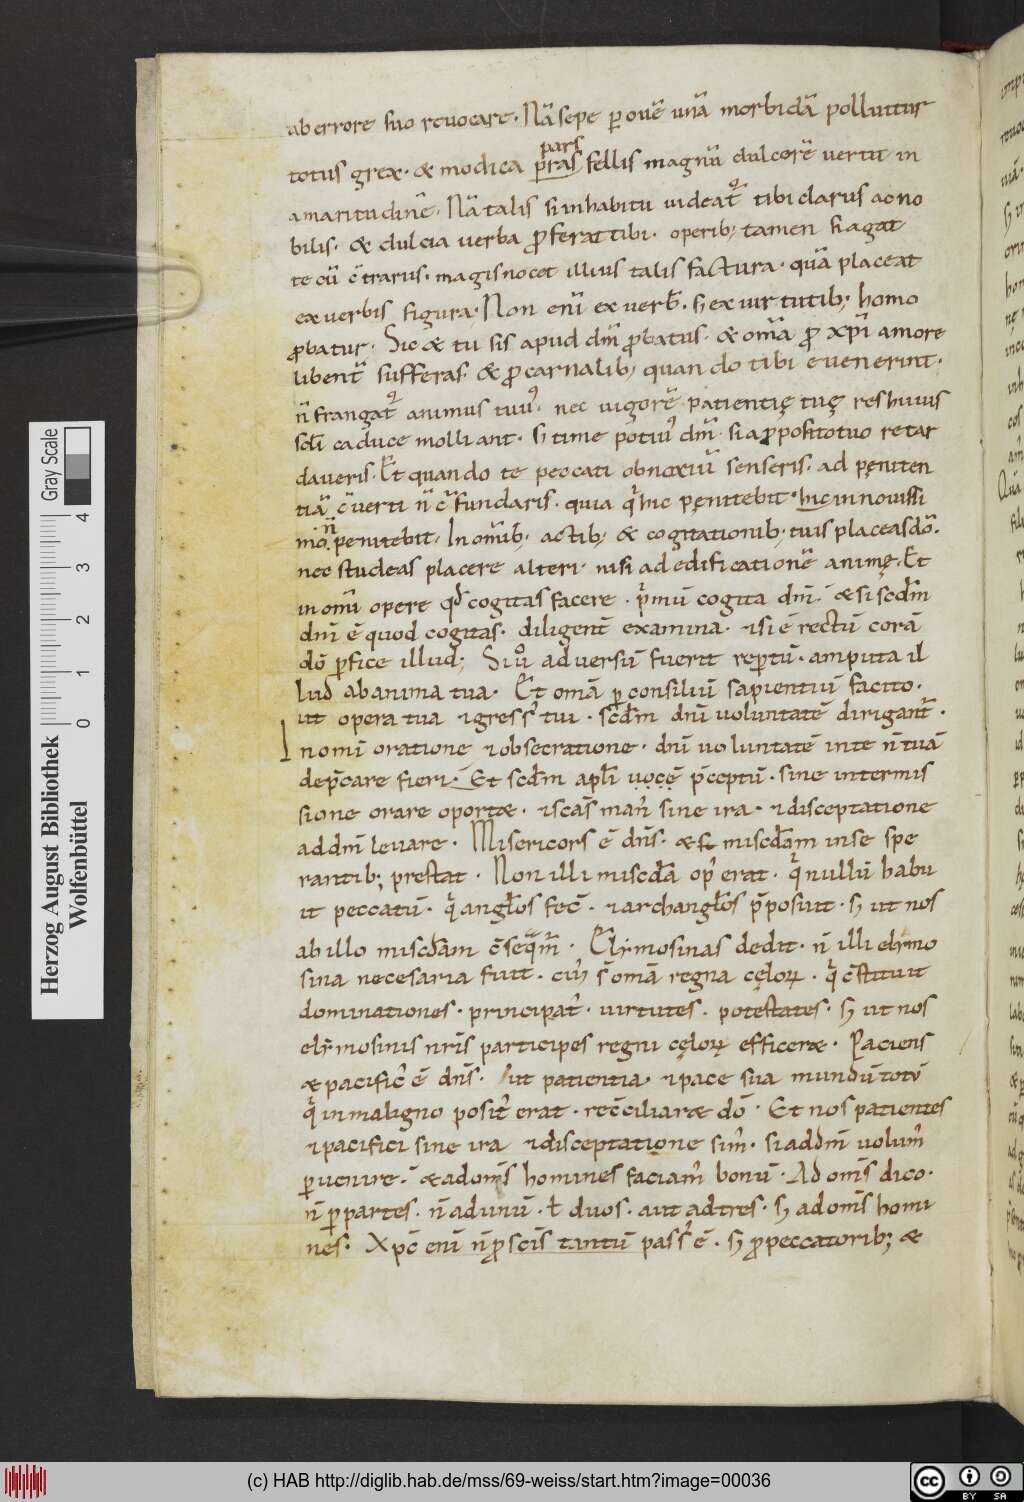 ab errore suo reuocare. Nā sepe ꝑ ouē unā morbidā polluitur
totus grex. & modica pars fellis magnū dulcorē uertit in
amaritudinē. Nā talis si in habitu uideat᷑ tibi clarus ac no
bilis. & dulcia uerba ꝓferat tibi. operib; tamen si agat
te cū c̄trarius. magis nocet illius talis factura. quā placeat
ex uerbis figura. Non enī ex uerb̄. sꝫ ex uirtutib; homo
ꝓbatur. Sic & tu sis apud dm̄ ꝓbatus. & om̄a ꝓ xp̄i amore
libent̄ sufferas. & ꝓ carnalib; quando tibi euenerint.
n̄ frangat᷑ animus tuus. nec uigorē patientię tuę res huius
scl̄i caduce molliant. sꝫ time potiꝰ dm̄. si a ꝓposito tuo retar
daueris. Et quando te peccati obnoxiū senseris. ad pęniten
tiā c̄uerti n̄ c̄fundaris. quia q̇ hic pęnitebit. hic in nouissi
mo n̄ penitebit. In om̄ib; actib; & cogitationib; tuis placeas dō.
nec studeas placere alteri. nisi ad edificationē animę. Et
in om̄i opere qd̄ cogitas facere. ṗmū cogita dm̄. & si scdm̄
dm̄ ē quod cogitas. diligent̄ examina. & si ē rectū corā
dō ꝑfice illud; Si u̇ aduersū fuerit reꝑtū. amputa il
lud ab anima tua. Et om̄a ꝑ consiliū sapientiū facito.
ut opera tua & gressꝰ tui. scdm̄ dn̄i uoluntatē dirigant᷑.
In omī oratione & obsecratione. dn̄i uoluntatē in te n̄ tuā
dep̄care fieri. Et scdm̄ apl̄i uocē p̄ceptū. sine intermis
sione orare oport&. & scās manꝰ sine ira. & disceptatione
ad dm̄ leuare. Misericors ē dn̄s. & miscd̄am in se spe
rantib; prestat. Non illi miscd̄a opꝰ erat. q̇ nullū habu
it peccatū. q̇ angl̄os fec̄. & archangl̄os p̄posuit. sꝫ ut nos
ab illo miscd̄am c̄seq̄m̄. Elymosinas dedit. n̄ illi elymo
sina necesaria fuit. cuiꝰ s̄ om̄a regna cęloꝝ. q̇ c̄stituit
dominationes. principatꝰ. uirtutes. potestates. sꝫ ut nos
elymosinis nr̄is participes regni cęloꝝ efficer&. Paciens
& pacificꝰ ē dn̄s. ut patientia. & pace sua mundū totū
q̇ in maligno positꝰ erat. rec̄ciliar& dō. Et nos patientes
& pacifici sine ira & disceptatione simꝰ. si ad dm̄ uolumꝰ
ꝑuenire. & ad om̄s homines faciamꝰ bonū. Ad om̄s dico.
n̄ ꝑ partes. n̄ ad unū. ł duos. aut ad tres. sꝫ ad om̄s homi
nes. Xp̄c enī n̄ ꝓ scīs tantū passꝰ ē. sꝫ ꝓ peccatorib; &
Herzog August Bibliothek
Wolfenbüttel
0 1 2 3 4
Gray Scale
(c) HAB http://diglib.hab.de/mss/69-weiss/start.htm?image=00036
cc BY SA